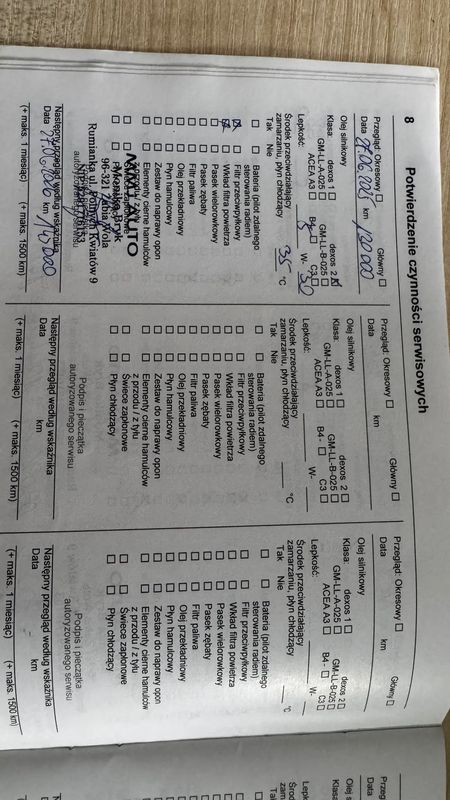 8 Potwierdzenie czynności serwisowych
Przegląd: Okresowy Główny
Data 27.06.2025 km 120 000
Olej silnikowy
Klasa: dexos 1 dexos 2
GM-LL-A-025 GM-LL-B-025
ACEA A3 B4- C3
Lepkość: 5 W- 30
Środek przeciwdziałający
zamarzaniu, płyn chłodzący 35 °C
Tak Nie
Bateria (pilot zdalnego
sterowania radiem)
Filtr przeciwpyłkowy
Wkład filtra powietrza
Pasek wielorowkowy
Pasek zębaty
Filtr paliwa
Olej przekładniowy
Płyn hamulcowy
Zestaw do naprawy opon
Elementy cierne hamulców
AUTO
Monika Bryk
96-321 Żabia Wola
Rumianka ul. Polnych Kwiatów 9
Następny przegląd według wskaźnika
Data km
(+ maks. 1 miesiąc) (+ maks. 1500 km)
Przegląd: Okresowy Główny
Data km
Olej silnikowy
Klasa: dexos 1 dexos 2
GM-LL-A-025 GM-LL-B-025
ACEA A3 B4- C3
Lepkość: W-
Środek przeciwdziałający
zamarzaniu, płyn chłodzący °C
Tak Nie
Bateria (pilot zdalnego
sterowania radiem)
Filtr przeciwpyłkowy
Wkład filtra powietrza
Pasek wielorowkowy
Pasek zębaty
Filtr paliwa
Olej przekładniowy
Płyn hamulcowy
Zestaw do naprawy opon
Elementy cierne hamulców
z przodu / z tyłu
Świece zapłonowe
Płyn chłodzący
Podpis i pieczątka
autoryzowanego serwisu
Następny przegląd według wskaźnika
Data km
(+ maks. 1 miesiąc) (+ maks. 1500 km)
Przegląd: Okresowy Główny
Data km
Olej silnikowy
Klasa: dexos 1 dexos 2
GM-LL-A-025 GM-LL-B-025
ACEA A3 B4- C3
Lepkość: W-
Środek przeciwdziałający
zamarzaniu, płyn chłodzący °C
Tak Nie
Bateria (pilot zdalnego
sterowania radiem)
Filtr przeciwpyłkowy
Wkład filtra powietrza
Pasek wielorowkowy
Pasek zębaty
Filtr paliwa
Olej przekładniowy
Płyn hamulcowy
Zestaw do naprawy opon
Elementy cierne hamulców
z przodu / z tyłu
Świece zapłonowe
Płyn chłodzący
Podpis i pieczątka
autoryzowanego serwisu
Następny przegląd według wskaźnika
Data km
(+ maks. 1 miesiąc) (+ maks. 1500 km)